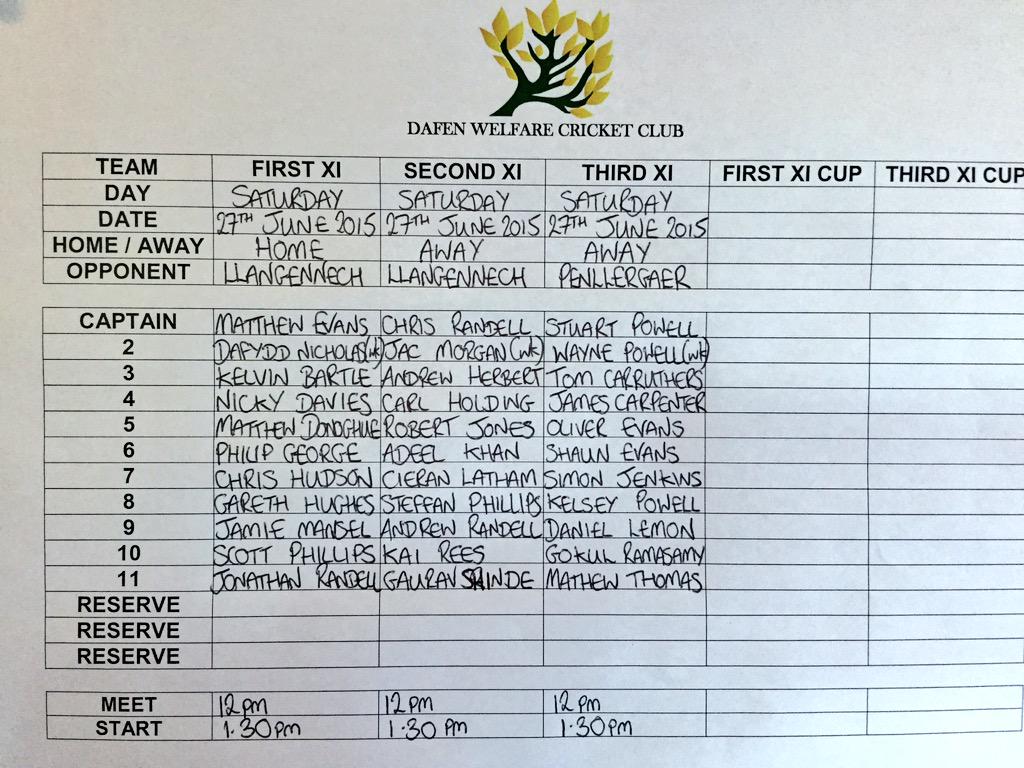 DAFEN WELFARE CRICKET CLUB
TEAM FIRST XI SECOND XI THIRD XI FIRST XI CUP THIRD XI CUP
DAY SATURDAY SATURDAY SATURDAY
DATE 27TH JUNE 2015 27TH JUNE 2015 27TH JUNE 2015
HOME / AWAY HOME AWAY AWAY
OPPONENT LLANGENNECH LLANGENNECH PENLLERGAER
CAPTAIN MATTHEW EVANS CHRIS RANDELL STUART POWELL
2 DAFYDD NICHOLAS(wk) JAC MORGAN(wk) WAYNE POWELL(wk)
3 KELVIN BARTLE ANDREW HERBERT TOM CARRUTHERS
4 NICKY DAVIES CARL HOLDING JAMES CARPENTER
5 MATTHEW DONOGHUE ROBERT JONES OLIVER EVANS
6 PHILIP GEORGE ADEEL KHAN SHAUN EVANS
7 CHRIS HUDSON CIERAN LATHAM SIMON JENKINS
8 GARETH HUGHES STEFFAN PHILLIPS KELSEY POWELL
9 JAMIE MANSEL ANDREW RANDELL DANIEL LEMON
10 SCOTT PHILLIPS KAI REES GOKUL RAMASAMY
11 JONATHAN RANDELL GAURAV SHINDE MATHEW THOMAS
RESERVE
RESERVE
RESERVE
MEET 12pm 12pm 12pm
START 1.30pm 1.30pm 1.30pm